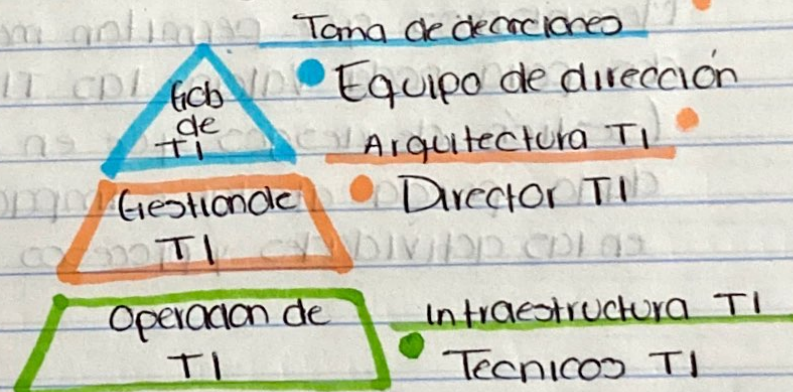 Toma de decisiones
Gob de TI
Equipo de dirección
Arquitectura TI
Gestion de TI
Director TI
Operacion de TI
Infraestructura TI
Tecnicos TI